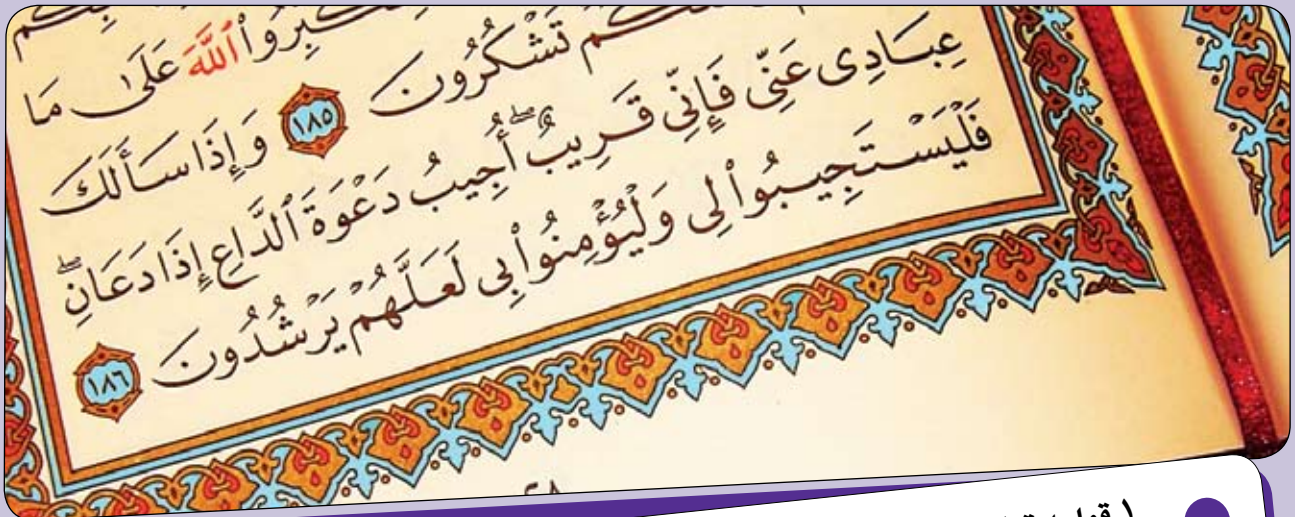 ٱللَّهَ عَلَىٰ مَا
تَشْكُرُونَ ١٨٥ وَإِذَا سَأَلَكَ
عِبَادِى عَنِّى فَإِنِّى قَرِيبٌ ۖ أُجِيبُ دَعْوَةَ ٱلدَّاعِ إِذَا دَعَانِ ۖ
فَلْيَسْتَجِيبُوا۟ لِى وَلْيُؤْمِنُوا۟ بِى لَعَلَّهُمْ يَرْشُدُونَ ١٨٦